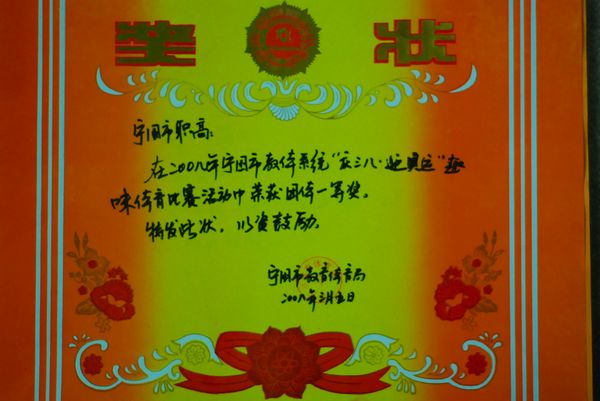 奖状
宁国市职高:
在二00八年宁国市教体系统“庆三八·迎奥运”趣
味体育比赛活动中荣获团体一等奖。
特发此状，以资鼓励。
宁国市教育体育局
二00八年三月五日